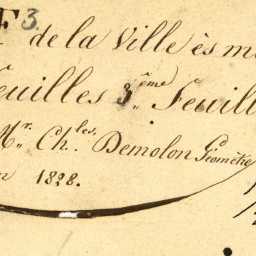 3.
de la Ville ès m
Feuilles 3.ème Feuill
Mr. Chles. Demolon Géomètre
n 1828.